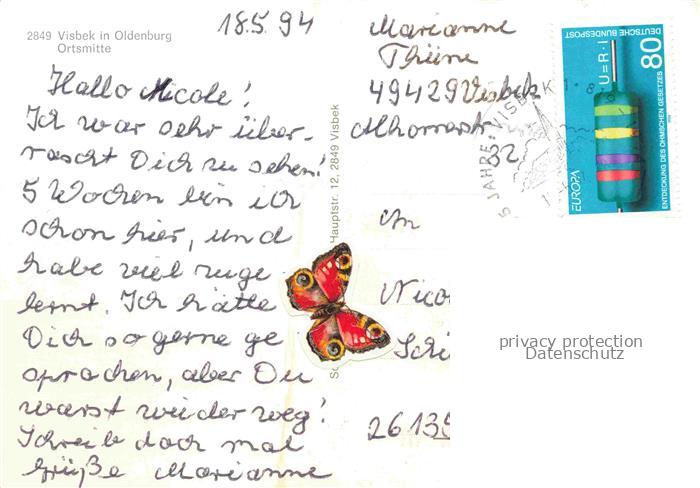 2849 Visbek in Oldenburg
Ortsmitte
18.5.94
Hallo Nicole!
Ich war sehr über-
rascht Dich zu sehen!
5 Wochen bin ich
schon hier, und
habe viel zuge
lernt. Ich hätte
Dich so gerne ge
sprochen, aber Du
warst wieder weg!
Schreib doch mal
Grüße Marianne
Hauptstr. 12, 2849 Visbek
Marianne
Thüne
49429 Visbek
Ahlhornerstr.
32
An
Nico
Schi
26135
DEUTSCHE BUNDESPOST
80
U=R·I
EUROPA
ENTDECKUNG DES OHMSCHEN GESETZES
JAHRE VISBEK
privacy protection
Datenschutz